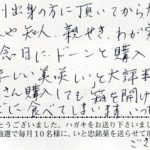 川出身の方に頂いてから
や知人、親せき、わが家
念日にドーンと購入
しい美味しいと大評
さん購入しても箱を開け
に食べてしまいます
とうございました。ハガキをお送り下さいま
抽選で毎月10名様に、いと忠銘菓を送らせて頂